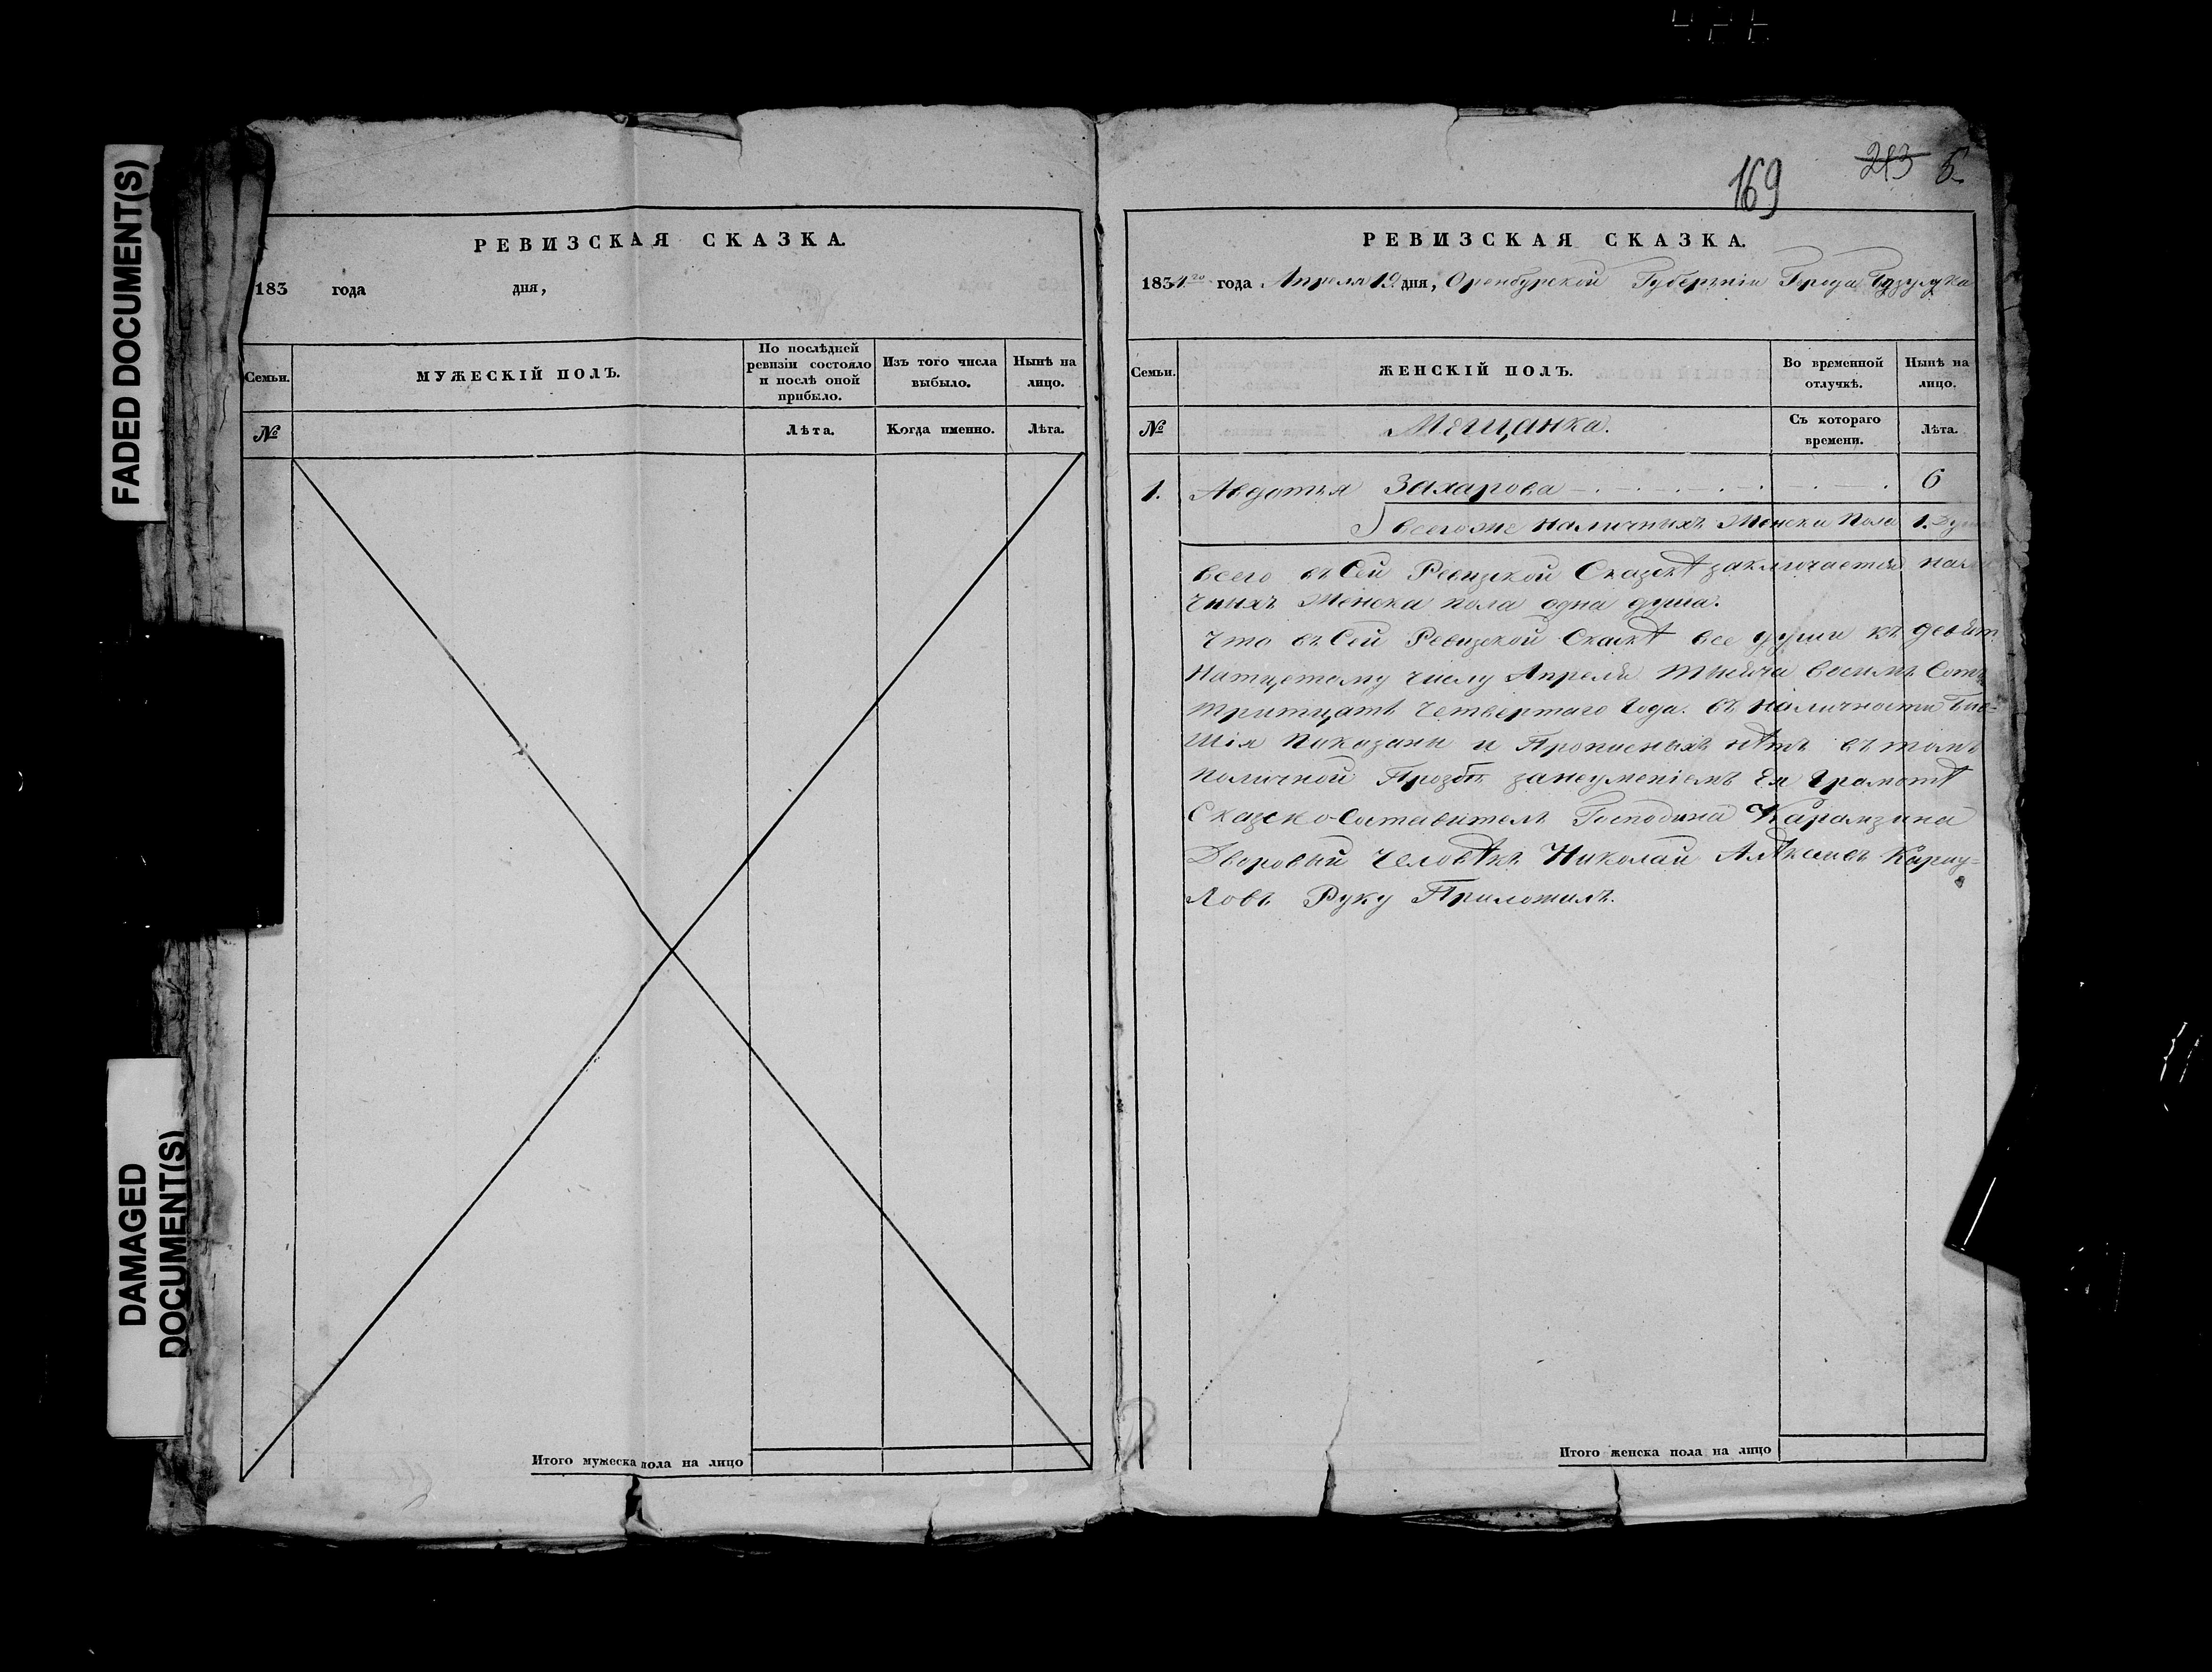 FADED DOCUMENT(S)
DAMAGED
DOCUMENT(S)
РЕВИЗСКАЯ СКАЗКА.
183 года дня,
Семьи.
МУЖЕСКІЙ ПОЛЪ.
По послѣдней
ревизіи состояло
и послѣ оной
прибыло.
Изъ того числа
выбыло.
Нынѣ на
лицо.
№
Лѣта.
Когда именно.
Лѣта.
Итого мужеска пола на лицо
169 213
РЕВИЗСКАЯ СКАЗКА.
1834го года Апреля 19 дня, Оренбурской Губерніи Города Бузулука
Семьи.
ЖЕНСКІЙ ПОЛЪ.
Во временной
отлучкѣ.
Нынѣ на
лицо.
№
Мещанка.
Съ котораго
времени.
Лѣта.
1. Авдотья Захарова 6
Всего же наличныхъ Женска Пола 1. Душ
Всего въ Сей Ревизской Сказкѣ заключается нали
чныхъ Женска пола одна душа.
Что въ Сей Ревизской Сказкѣ все души къ девят
Натцетому числу Апреля тысяча восемь Сотъ
тритцать четвертаго Года. въ наличности Быв=
Шія Показаны и Прописныхъ нѣтъ въ томъ
Поличной Прозбѣ занеуменіемъ Ея Грамотѣ
Сказско-Составитель Господина Карамзина
Дворовый Человѣкъ Николай Алѣксеевъ Карау=
Ловъ Руку Приложилъ.
Итого женска пола на лицо